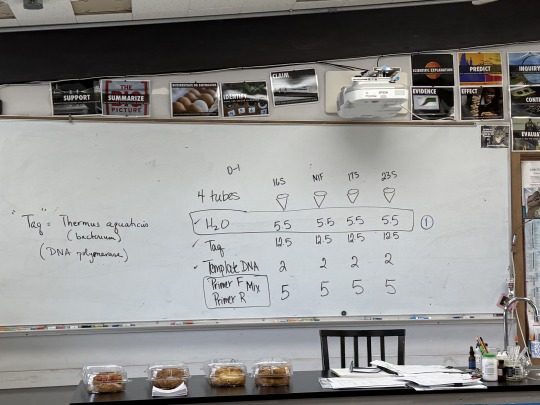 CLAIM
SCIENTIFIC EXPLANATION
PREDICT
INQUIRY
SUPPORT
THE
SUMMARIZE
PICTURE
IDENTIFY
EVIDENCE
EFFECT
D-1
16S NIF 17S 23S
4 tubes
H₂O 5.5 5.5 5.5 5.5 ①
"Taq" = Thermus aquaticus
(bacterium)
(DNA polymerase)
Taq 12.5 12.5 12.5 12.5
Template DNA 2 2 2 2
Primer F Mix 5 5 5 5
Primer R